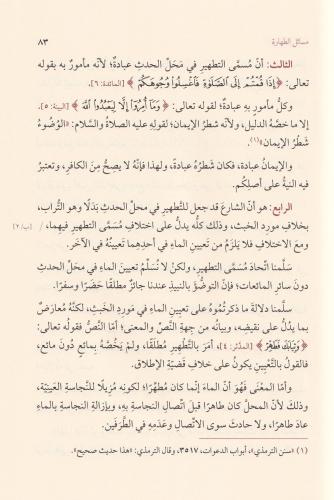 مسائل الطهارة ٨٣
الثالث: أنّ مُسمَّى التطهيرِ في مَحَلِّ الحدثِ عبادةٌ؛ لأنّه مأمورٌ به بقوله
تعالى: ﴿إِذَا قُمْتُمْ إِلَى الصَّلَوٰةِ فَاغْسِلُوا وُجُوهَكُمْ﴾ [المائدة: ٦].
وكلُّ مأمورٍ به عبادةٌ؛ لقوله تعالى: ﴿وَمَا أُمِرُوا إِلَّا لِيَعْبُدُوا اللَّهَ﴾ [البينة: ٥].
إلا ما خصَّهُ الدَّليل، ولأنّه شطرُ الإيمان؛ لقولِهِ عليه الصلاةُ والسَّلام: «الوُضُوءُ
شَطْرُ الإيمانِ»(١).
والإيمانُ عبادة، فكان شَطرُهُ عبادةً، ولهذا فإنّهُ لا يصحُّ مِنَ الكافرِ، وتعتبرُ
فيه النيَّةُ على أصلِكُم.
الرابع: هو أنّ الشارعَ قد جعل للتَّطهيرِ في محلِّ الحدثِ بدَلًا وهو التُّراب،
بخلافِ مورِد الخبَث، وذلك كلُّه يدلُّ على اختلافِ مُسمَّى التطهيرِ فيهما، [ب/٢]
ومعَ الاختلافِ فلا يلزَمُ من تَعيينِ الماءِ في أحدِهما تَعيينُهُ في الآخر.
سَلَّمنا اتّحادَ مُسمَّى التطهيرِ، ولكنْ لا نُسَلِّمُ تعيينَ الماءِ في محلِّ الحدثِ
دونَ سائرِ المائعات؛ فإنَّ التوضُّؤَ بالنبيذِ عندنا جائزٌ مطلقًا حَضَرًا وسفَرًا.
سلَّمنا دلالةَ ما ذكرتُموهُ على تعيينِ الماءِ في مورِدِ الخبَثِ، لكنَّهُ مُعارَضٌ
بما يدُلُّ على نقيضِهِ، وبيانُه من جهةِ النَّصِّ والمعنى؛ أمّا النَّصُّ فقولُه تعالى:
﴿وَثِيَابَكَ فَطَهِّرْ﴾ [المدَّثر: ٤]، أمَرَ بالتَّطهيرِ مُطلَقًا، ولم يخُصَّهُ بمائعٍ دُونَ مائع،
فالقولُ بالتَّعيينِ يكونُ على خلافِ قضيَّةِ الإطلاقِ.
وأمّا المعْنَى فهُوَ أنّ الماءَ إنّما كان مُطهِّرًا؛ لكونِهِ مُزيلًا للنَّجاسةِ العَينيّة،
وذلك لأنّ المحلَّ كان طاهرًا قبلَ اتّصالِ النَّجاسةِ بهِ، وبإزالةِ النَّجاسةِ بالماءِ
عادَ طاهرًا، ولا حادثَ سوى الاتّصالِ وعَدَمِه في الطَّرَفين.
(١) «سنن الترمذي»، أبواب الدعوات، ٣٥١٧، وقال الترمذي: «هذا حديث صحيح».